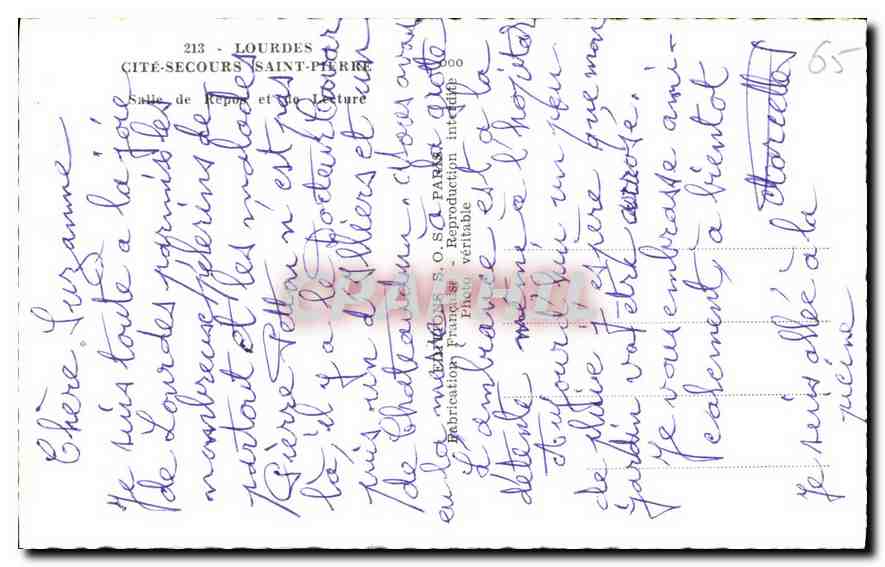 213 - LOURDES
CITÉ-SECOURS SAINT-PIERRE
Salle de Repos et de Lecture
65
Chère Suzanne
Je suis toute à la joie
de Lourdes parmis les
nombreuse pélerins de
partout et les malades
Pierre n'est pas
là, il y a le Docteur
puis un de et un
de Chateaudun. Nous avons
eu la messe à la grotte
L'ambiance est à la
détente même à l'hôpital
Aujourd'hui un peu
de pluie j'espère que mon
jardin va être arrosé.
Je vous embrasse ami-
calement, à bientot
Marcelle
Je suis allée à la
picine
ÉDITIONS S.O.S. PARIS
Fabrication Française - Reproduction interdite
Photo véritable
CRAPHIL